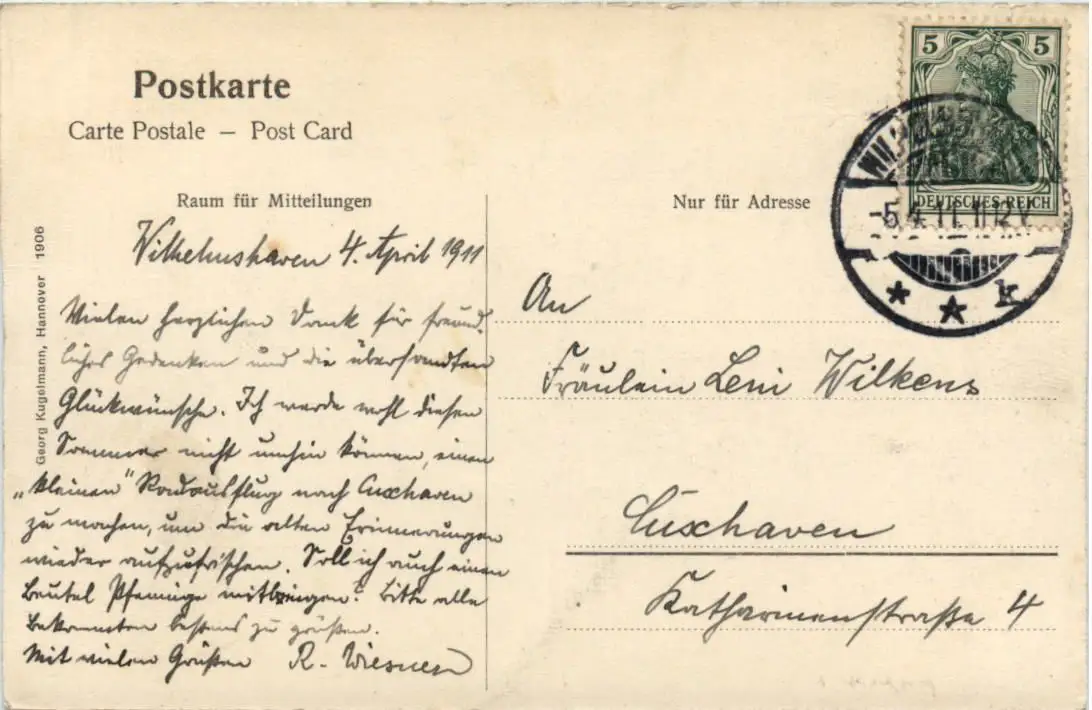 Postkarte
Carte Postale – Post Card
Raum für Mitteilungen
Wilhelmshaven 4. April 1911
Vielen herzlichen Dank für freund-
liches Gedenken und die übersandten
Glückwünsche. Ich werde wohl diesen
Sommer nicht umhin können, einen
„kleinen“ Radausflug nach Cuxhaven
zu machen, um die alten Erinnerungen
wieder aufzufrischen. Soll ich auch einen
Beutel Pfennige mitbringen? Bitte alle
Bekannten bestens zu grüßen.
Mit vielen Grüßen R. Wiesner
Georg Kugelmann, Hannover 1906
Nur für Adresse
5 5
DEUTSCHES REICH
-5.4.11.11-12V.
* * k
An
Fräulein Leni Wilkens
Cuxhaven
Katharinenstraße 4